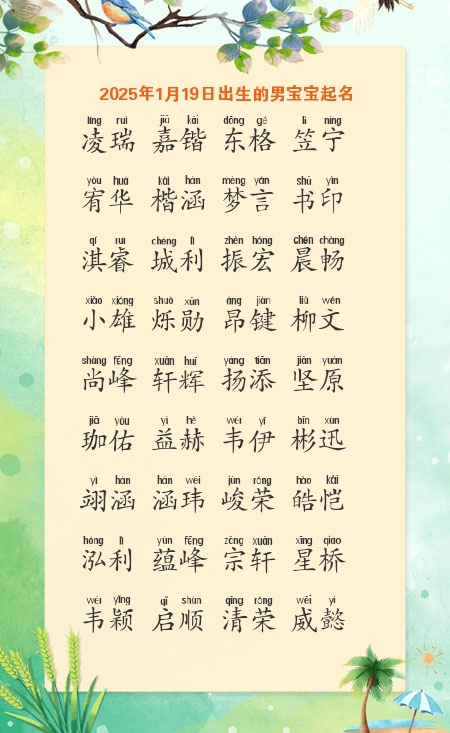 2025年1月19日出生的男宝宝起名
líng ruì jiū kǎi dōng gé lì níng
凌瑞 嘉锴 东格 笠宁
yòu huá kǎi hán mèng yán shū yìn
宥华 楷涵 梦言 书印
qí ruì chéng lì zhèn hóng chén chàng
淇睿 城利 振宏 晨畅
xiǎo xióng shuò xūn áng jiàn liǔ wén
小雄 烁勋 昂键 柳文
shàng fēng xuān huī yáng tiān jiān yuán
尚峰 轩辉 扬添 坚原
jiā yòu yì hè wéi yī bīn xùn
珈佑 益赫 韦伊 彬迅
yì hán hán wěi jùn róng hào kǎi
翊涵 涵玮 峻荣 皓恺
hóng lì yùn fēng zōng xuān xīng qiáo
泓利 蕴峰 宗轩 星桥
wéi yǐng qǐ shùn qīng róng wēi yì
韦颖 启顺 清荣 威懿